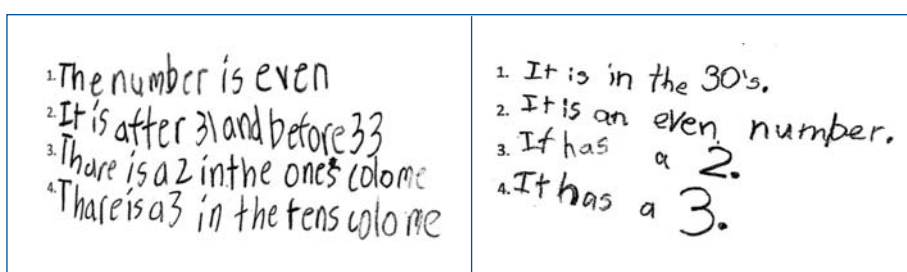 1. The number is even
2. It is after 31 and before 33
3. Thare is a 2 in the ones colome
4. Thare is a 3 in the tens colome
1. It is in the 30's.
2. It is an even number.
3. It has a 2.
4. It has a 3.